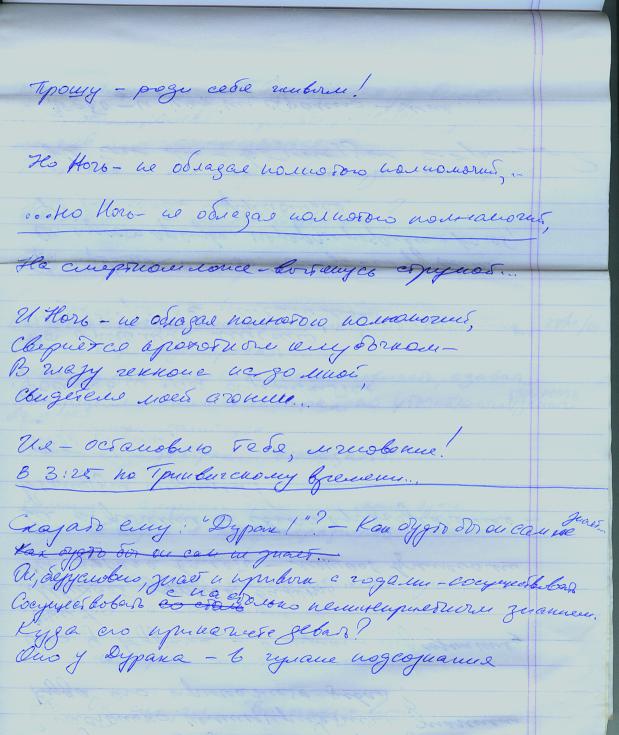 Прошу – роди себя живым!
Но Ночь – не обладая полнотою полномочий,..
...но Ночь – не обладая полнотою полномочий,
На смертном ложе – вытянусь струной...
И Ночь – не обладая полнотою полномочий,
Свернётся крохотным клубочком –
В глазу геккона надо мной,
Свидетеля моей агонии...
И я – остановлю тебя, мгновение!
В 3:25 по Гринвичскому времени...
Сказать ему: "Дурак!"? – Как будто бы он сам не знает...
Как будто бы он сам не знает...
Он, безусловно, знает и привык с годами – сосуществовать
Сосуществовать со столь с настолько нелицеприятным знанием.
Куда его прикажете девать?
Оно у Дурака – в чулане подсознания